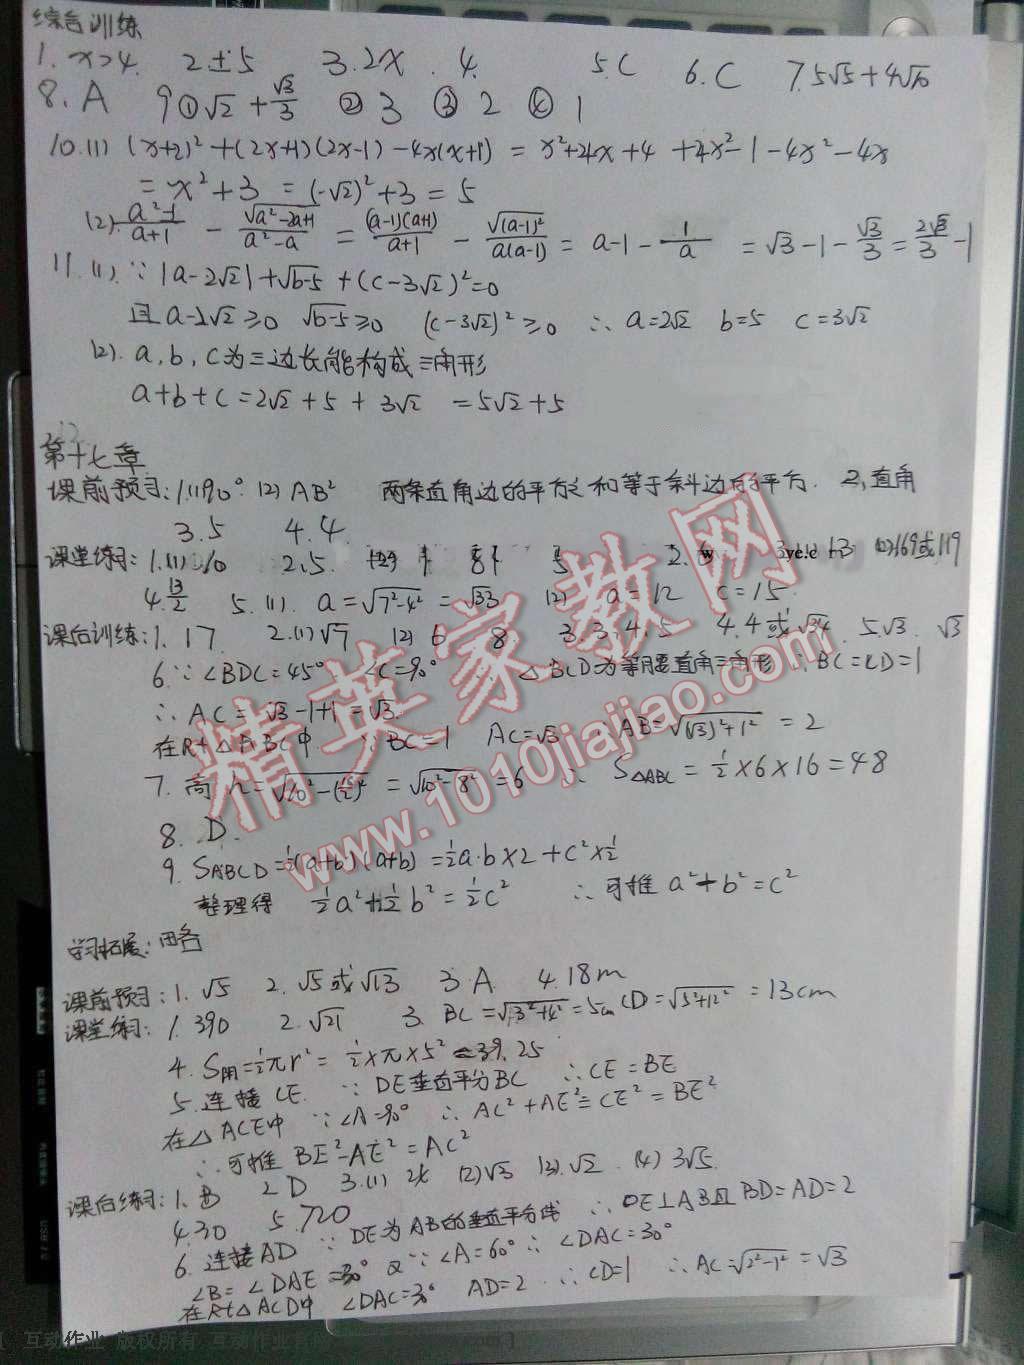 综合训练
1. x>4. 2 ±5 3. 2x. 4. 5. C 6. C 7. 5√5+4√10
8. A 9 ①√2+√3/3 ② 3 ③ 2 ④ 1
10. (1) (x+2)²+(2x+1)(2x-1)-4x(x+1) = x²+4x+4+4x²-1-4x²-4x
= x²+3 = (-√2)²+3 = 5
(2) (a²-1)/(a+1) - √(a²-2a+1)/(a²-a) = (a-1)(a+1)/(a+1) - √(a-1)²/a(a-1) = a-1-1/a = √3-1-√3/3 = 2√3/3-1
11. (1). ∵ |a-2√2|+√b-5+(c-3√2)²=0
且a-2√2≥0 √b-5≥0 (c-3√2)²≥0 ∴ a=2√2 b=5 c=3√2
(2). a, b, c为三边长能构成三角形
a+b+c=2√2+5+3√2 =5√2+5
第十七章
课前预习: 1.(1)90° (2) AB² 两条直角边的平方之和等于斜边的平方. 2, 直角
3. 5 4. 4.
课堂练习: 1.(1) 10 2. 5. (2)169或119
4. 13/2 5. (1). a=√7²-4²=√33 (2) a=12 c=15
课后训练: 1. 17. 2.(1)√7 (2) 6 8. 3. 3, 4, 5 4. 4或√34. 5. √3. √3
6. ∵ ∠BDC=45° ∠C=90° △BCD为等腰直角三角形 ∴ BC=CD=1
∴ AC=√3-1+1=√3.
在Rt△ABC中 ∵ BC=1 AC=√3 ∴ AB=√(√3)²+1² = 2
7. 高h=√10²-(16/2)² = √10²-8² = 6 ∴ S△ABC=1/2×6×16=48
8. D.
9. SABCD=1/2(a+b)(a+b)=1/2a·b×2+c²×1/2
整理得 1/2a²+1/2b²=1/2c² ∴ 可推 a²+b²=c²
学习拓展: 略
课前预习: 1. √5 2. √5或√13 3. A 4. 18m
课堂练习: 1. 390 2. √21 3. BC=√3²+4²=5cm CD=√5²+12² = 13cm
4. S阴=1/2πr²=1/2×π×5²≈39.25
5. 连接CE. ∵ DE垂直平分BC ∴ CE=BE
在△ACE中 ∵∠A=90° ∴ AC²+AE²=CE²=BE²
∴ 可推 BE²-AE²=AC²
课后练习: 1. B 2 D 3.(1) 2√ (2)√3 (3). √2 (4) 3√5.
4. 30 5. 720
6. 连接AD ∵ DE为AB的垂直平分线 ∴ DE⊥AB且BD=AD=2
∠B=∠DAE=30° 又∵∠A=60° ∴ ∠DAC=30°
在Rt△ACD中 ∠DAC=30° AD=2 ∴ CD=1 ∴ AC=√2²-1² = √3
精英家教网
www.1010jiajiao.com
互动作业 版权所有 互动作业